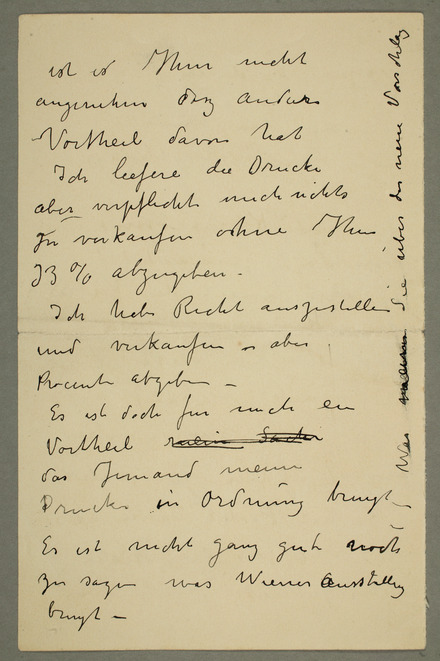 ist es Ihm nicht
angenehm daß andere
Vortheil davon hat
Ich liefere die Drucke
aber verpflichte mich nichts
zu verkaufen ohne Ihm
33 % abzugeben –
Ich habe Recht auszustellen
und verkaufen – aber
Procente abgeben –
Es ist doch für mich ein
Vortheil
das Jemand meine
Drucke in Ordnung bringt
Es ist nicht ganz gut noch
zu sagen was Wiener Ausstellung
bringt –
Was Sie über der neue Vorschlag